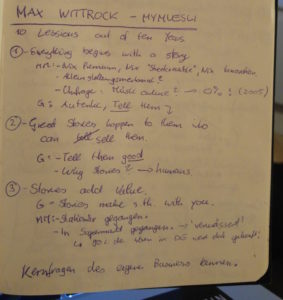 MAX WITTROCK - MYMUESLI
10 Lessions out of ten Years
① -Everything begins with a story
MM:- Nix Premium, Nix "Shareable", Nix
-Alleinstellungsmerkmal?
-Umfrage: Müsli online? → 0%! (2005)
G: Autentic, Tell them
② -Great Stories happen to them who
can tell sell them.
G: -Tell them good
- Why stories? → humans
③ - Stories add value.
G - Stories make sth. with you.
MM: -Stationär gegangen.
- In Supermarkt gegangen. →
in DE
Kernfragen des eigene Business kennen.